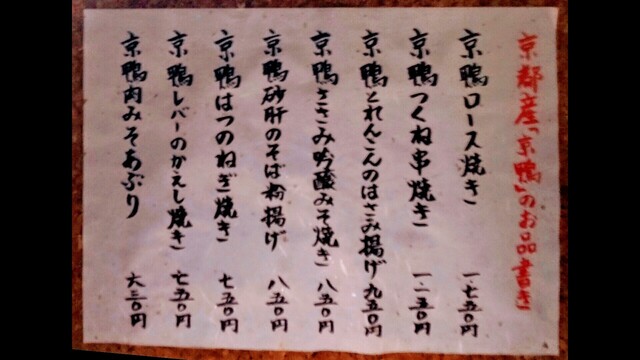 京都産「京鴨」のお品書き
京鴨ロース焼き 一、七五〇円
京鴨つくね串焼き 一、二五〇円
京鴨とれんこんのはさみ揚げ 九五〇円
京鴨ささみ吟醸みそ焼き 八五〇円
京鴨砂肝のそば粉揚げ 八五〇円
京鴨はつのねぎ焼き 七五〇円
京鴨レバーのかえし焼き 七五〇円
京鴨肉みそあぶり 六三〇円